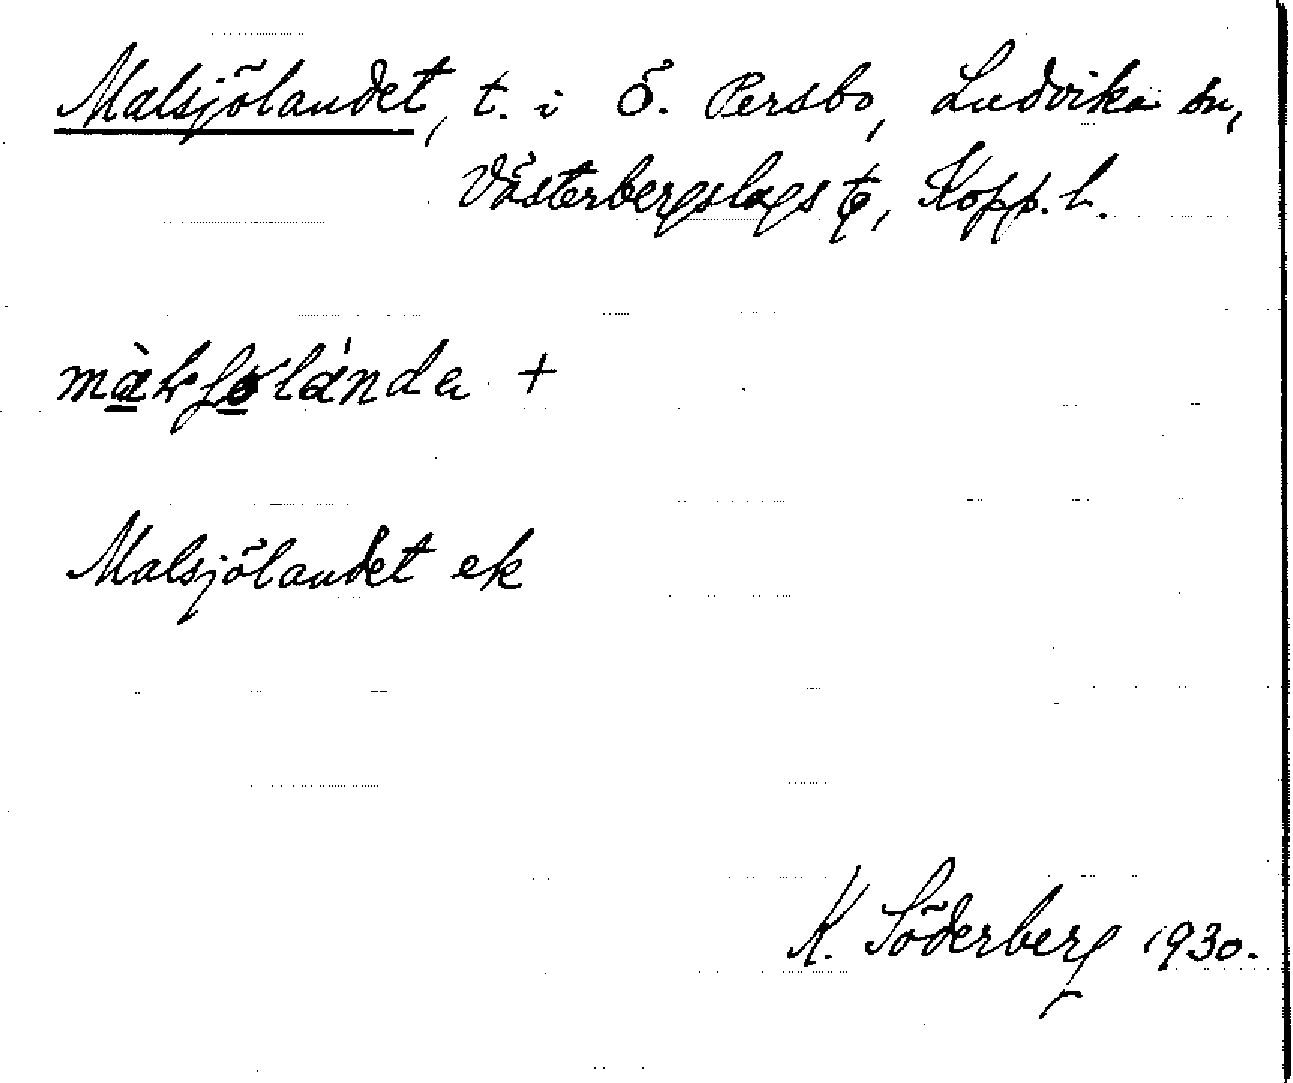 Malsjölandet, t. i Ö. Persbo, Ludvika sn,
Västerbergslags Kopp. l.
+
Malsjölandet ek
K. Söderberg 1930.